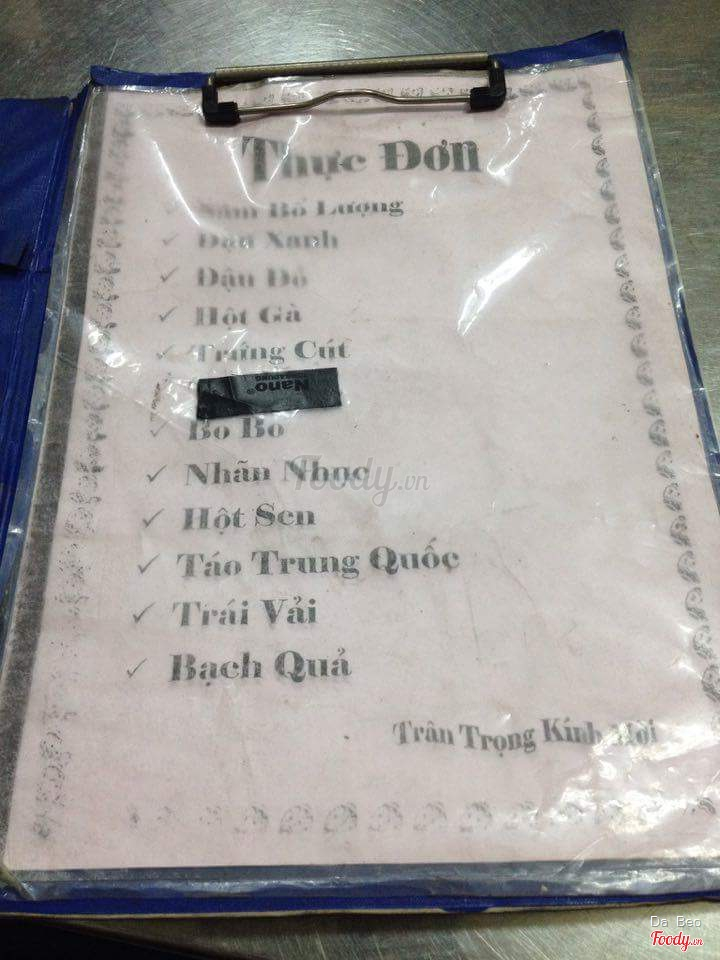 Thực Đơn
Sâm Bổ Lượng
Đậu Xanh
Đậu Đỏ
Hột Gà
Trứng Cút
Nano
Bo Bo
Nhãn Nhục
Foody.vn
Hột Sen
Táo Trung Quốc
Trái Vải
Bạch Quả
Trân Trọng Kính Mời
Da Beo
Foody.vn